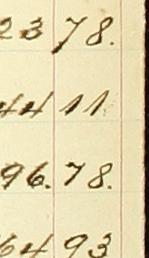 23 78.
44 11
96. 78.
64 93